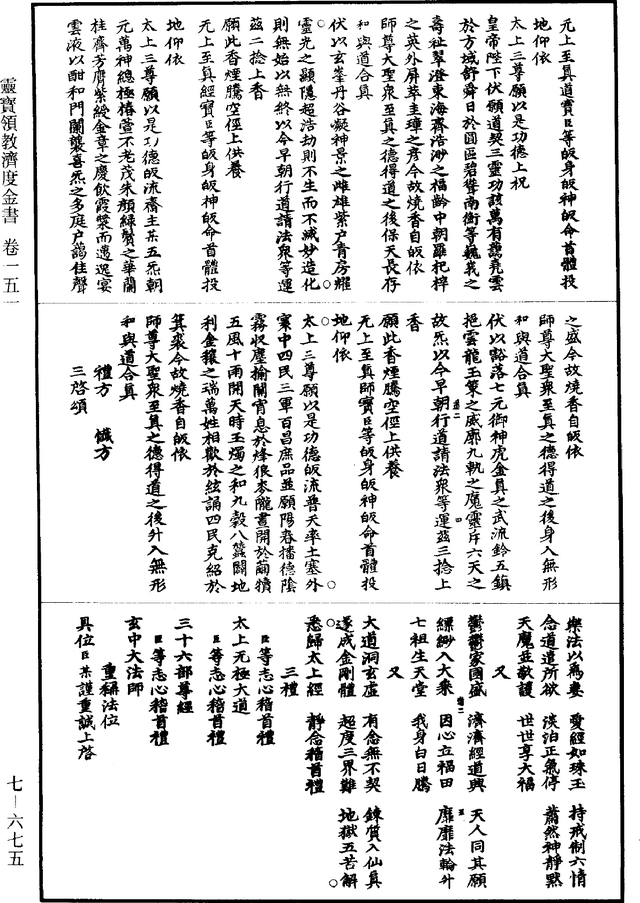 元上至真道寶臣等皈身皈神皈命首體投
地仰依
太上三尊願以是功德上祝
皇帝陛下伏願道契三靈功該萬有藹堯雲
於方域舒舜日於圓區碧鬱南衡等巍峩之
壽祉翠澄東海齊浩渺之福齡中朝羅杞梓
之英外屏萃圭璋之彥今故燒香自皈依
師尊大聖衆至真之德得道之後保天長存
和與道合真
伏以玄峯丹谷凝神景之雌雄紫户青房耀
靈光之顯隱超浩劫則不生而不滅妙造化
則無始以無終以今早朝行道請法衆等運
茲二捻上香
願此香煙騰空徑上供養
元上至真經寶臣等皈身皈神皈命首體投
地仰依
太上三尊願以是功德皈流齋主某五炁朝
元萬神總極椿壺不老茂朱顔綠鬢之華蘭
桂齊芳膺紫綬金章之慶飲霞漿而邁遐宴
雲液以酣和門闌襲喜炁之多庭户藹佳聲
之盛今故燒香自皈依
師尊大聖衆至真之德得道之後身入無形
和與道合真
伏以豁落七元御神虎金真之武流鈴五鎮
挹雲龍玉策之威廓九軌之魔靈斥六天之
故炁以今早朝行道請法衆等運茲三捻上
香
願此香煙騰空徑上供養
无上至真師寶臣等皈身皈神皈命首體投
地仰依
太上三尊願以是功德皈流普天率土塞外
寰中四民三軍百昌庶品並願陽春播德陰
霧收塵揄關宵息於烽狼麥隴晝開於繭犢
五風十雨開天時玉燭之和九穀八蠶闢地
利金穰之瑞萬姓相歡於絃誦四民克紹於
箕裘今故燒香自皈依
師尊大聖衆至真之德得道之後升入無形
和與道合真
禮方 懺方
三啓頌
樂法以爲妻 愛經如珠玉 持戒制六情
念道遣所欲 淡泊正氣停 蕭然神靜默
天魔並敬護 世世享大福
又
鬱鬱家國盛 濟濟經道興 天人同其願
縹緲入大乘 因心立福田 靡靡法輪升
七祖生天堂 我身白日騰
又
大道洞玄虛 有念無不契 鍊質入仙真
遂成金剛體 超度三界難 地獄五苦解
悉歸太上經 靜念稽首禮
三禮
臣等志心稽首禮
太上无極大道
臣等志心稽首禮
三十六部尊經
臣等志心稽首禮
玄中大法師
重稱法位
具位臣某謹重誠上啓
靈寶領教濟度金書 卷一五一
七—六七五